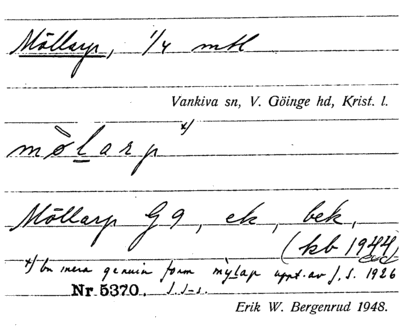 Möllarp, 1/4 mtl
Vankiva sn, V. Göinge hd, Krist. l.
x)
mø̀larp
Möllarp G9, ek, bek,
(kb 1944
x) En mera genuin form mỳlap uppt. av J. S. 1926
Nr. 5370. J. S-s.
Erik W. Bergenrud 1948.